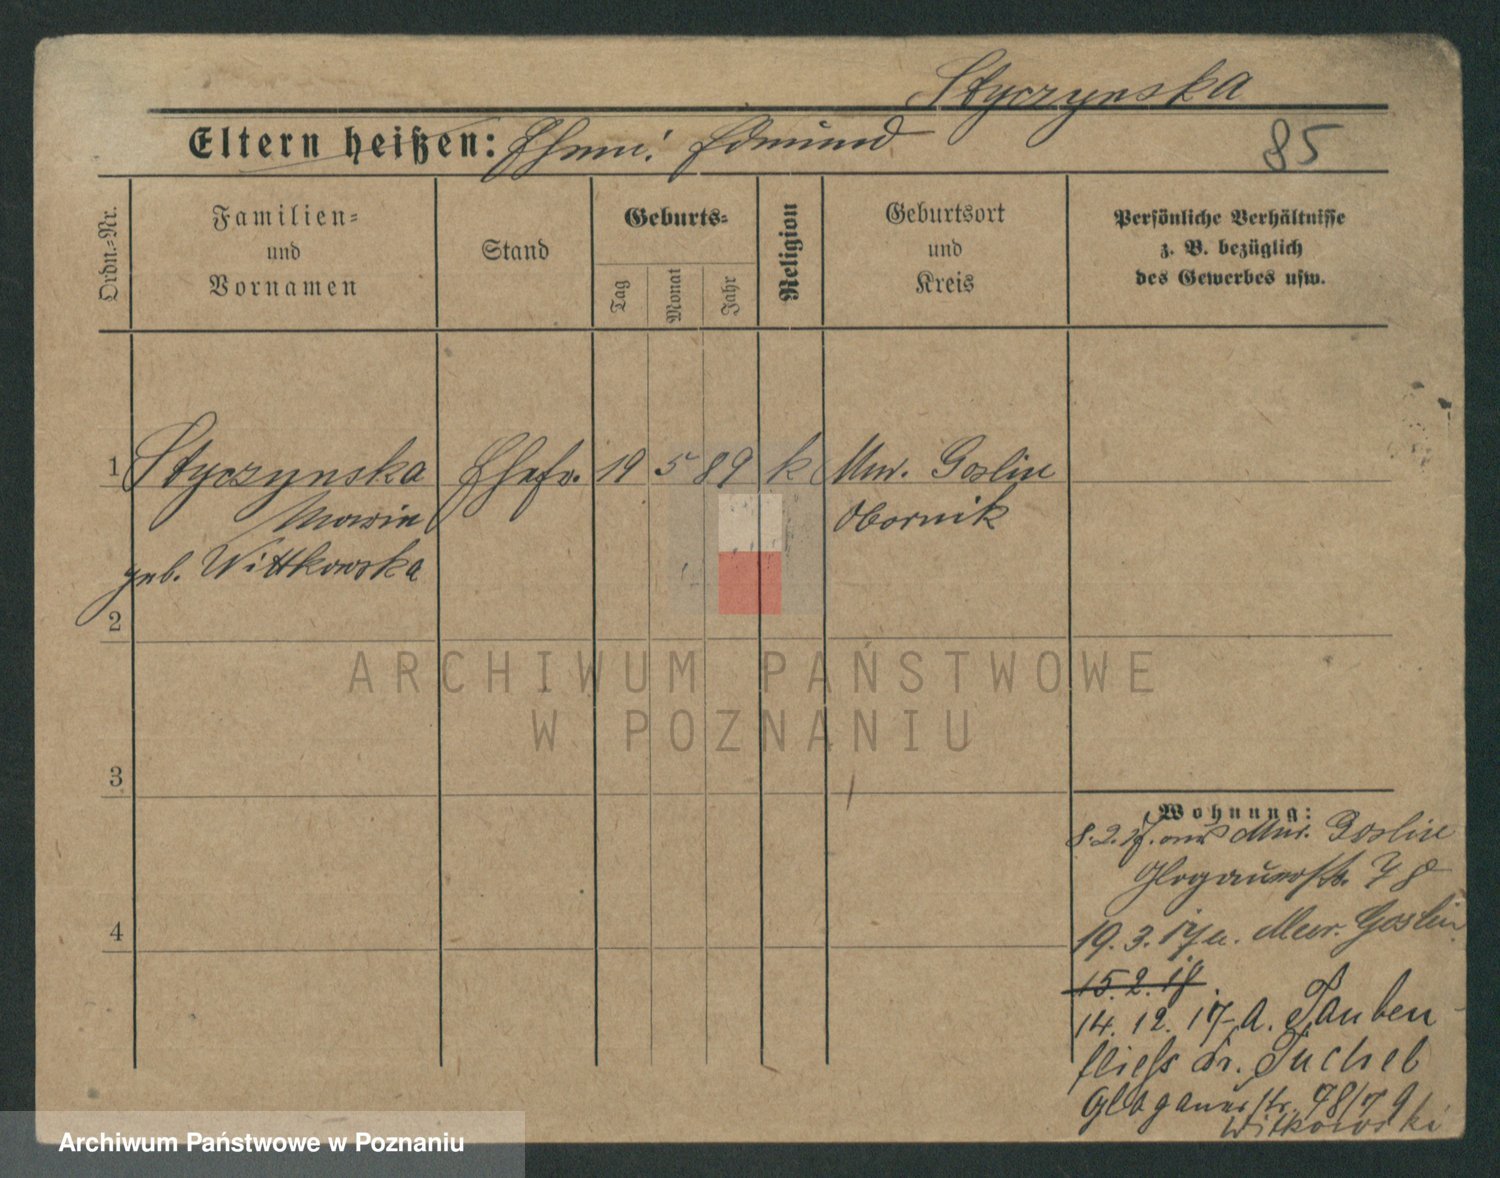 Styczynska
Eltern heißen: Ehem: Edmund
85
Ordn.=Nr.
Familien=
und
Vornamen
Stand
Geburts=
Tag
Monat
Jahr
Religion
Geburtsort
und
Kreis
Persönliche Verhältnisse
z. B. bezüglich
des Gewerbes usw.
1 Styczynska Ehefr. 19 5 89 k Mur. Goslin
Marie Obornik
geb. Wittkowska
2
ARCHIWUM PAŃSTWOWE
W POZNANIU
3
Wohnung:
8. 2. 17. aus Mur. Goslin
Glogauerstr. 78
19. 3. 17 n. Mur. Goslin
4
15. 2. 18.
14. 12. 17 a. Tauben-
fliess Kr. Tuchel
Glogauerstr. 78/79
Witkowski
Archiwum Państwowe w Poznaniu